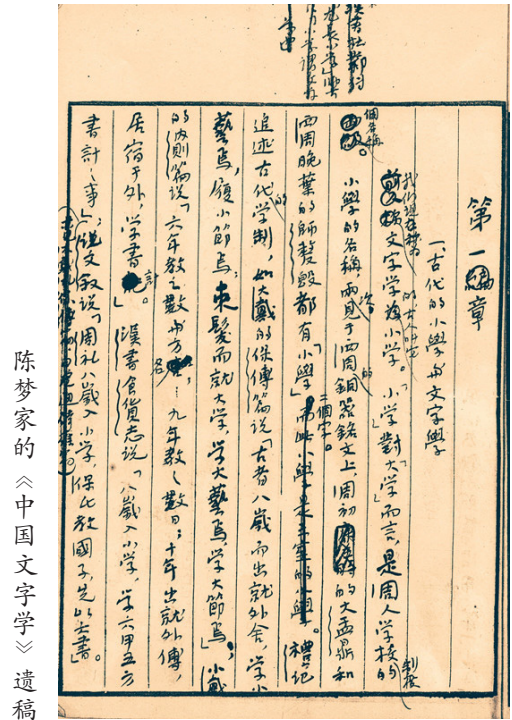 第一章
一、古代的小學与文字學
我们現在称为文字学的古人称它为小学。「小学」對「大学」而言，是周人学校的制度
個名称。
小學的名稱兩次見于西周銅器銘文上，周初的大盂鼎和
西周晚葉的師𠭰𣪘都有「小學」二個字。禮記
追述古代的学制，如大戴的保傅篇說「古者八歲而出就外舍，学小
藝焉，履小節焉；束髮而就大学，学大藝焉，学大節焉」；小戴
的内則篇說「六年教之數与方名……九年教之數日；十年出就外傅，
居宿于外，学書計。」漢書食貨志說「八歲入小学，学六甲五方
書計之事」；說文敘說「周礼八歲入小学，保氏教國子，先以六書」。
陈梦家的《中国文字学》遗稿